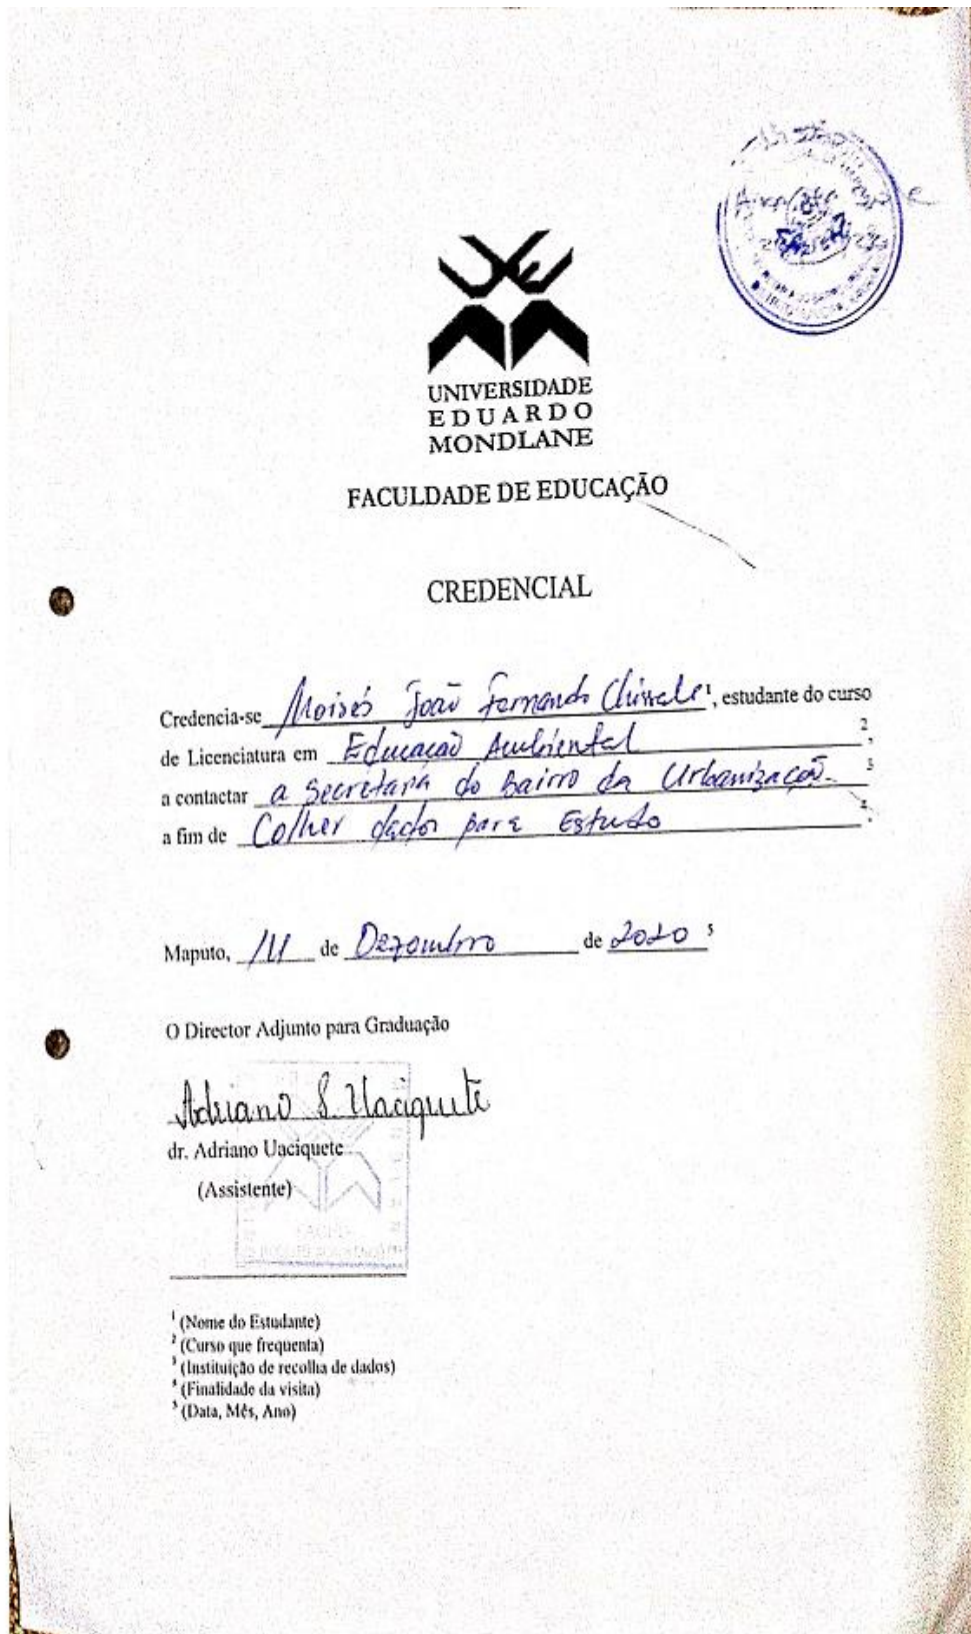 UNIVERSIDADE
EDUARDO
MONDLANE
FACULDADE DE EDUCAÇÃO
CREDENCIAL
Credencia-se Moisés João Fernando ¹, estudante do curso
de Licenciatura em Educação Ambiental ²,
a contactar a Secretaria do Bairro da Urbanização ³
a fim de Colher dados para Estudo ⁴.
Maputo, de Dezembro de 2020 ⁵
O Director Adjunto para Graduação
Adriano S. Uaciquete
dr. Adriano Uaciquete
(Assistente)
¹ (Nome do Estudante)
² (Curso que frequenta)
³ (Instituição de recolha de dados)
⁴ (Finalidade da visita)
⁵ (Data, Mês, Ano)